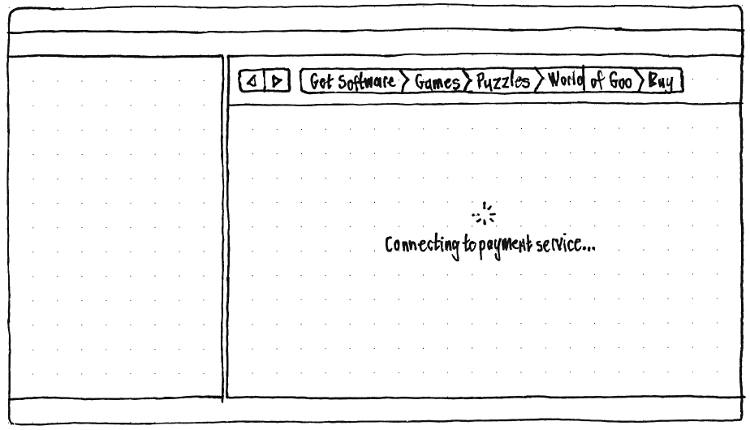 Get Software > Games > Puzzles > World of Goo > Buy
Connecting to payment service...